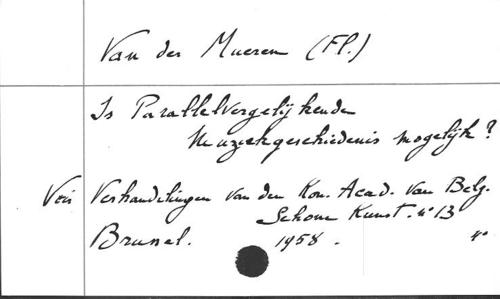 Van der Mueren (Fl.)
Is Parallelvergelijkende
Muziekgeschiedenis mogelijk?
Voir Verhandelingen van den Kon. Acad. van Belg.
Schone Kunst. n° 13
Brussel. 1958. 4°